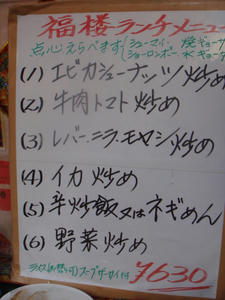 福楼ランチメニュー
点心えらべます(シューマイ 焼ギョーザ
ショーロンポー、水ギョーザ
(1) エビカシューナッツ炒め
(2) 牛肉トマト炒め
(3) レバーニラモヤシ炒め
(4) イカ炒め
(5) 辛炒飯又はネギめん
(6) 野菜炒め
ライス(お替り可)スープザーサイ付 ¥630